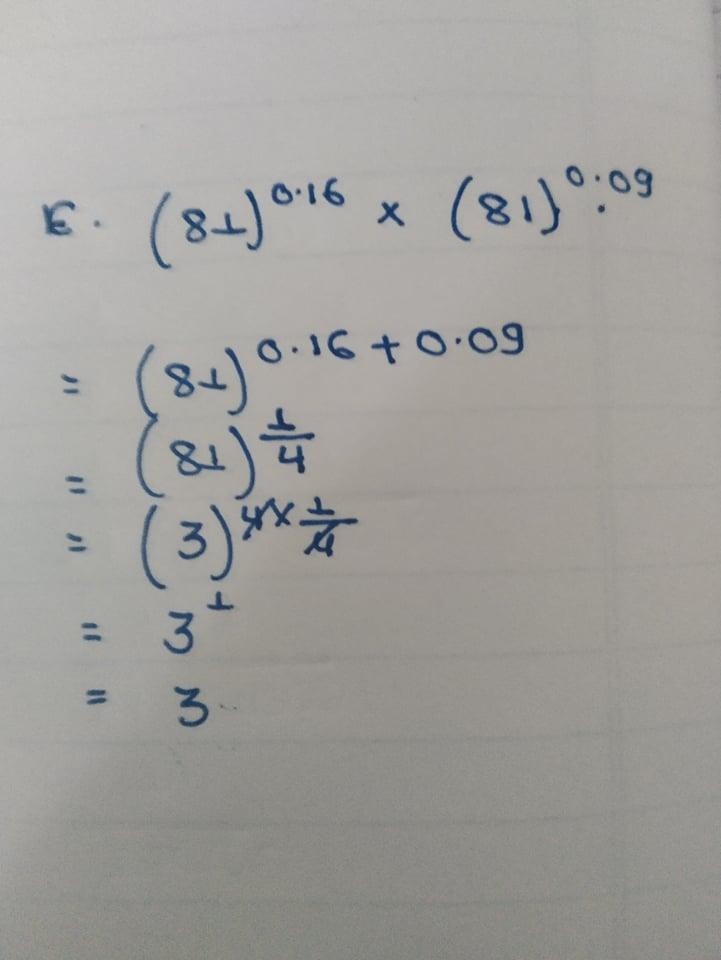 E. (81)^0.16 × (81)^0.09
= (81)^0.16 + 0.09
= (81)^1/4
= (3)^4×1/4
= 3^1
= 3